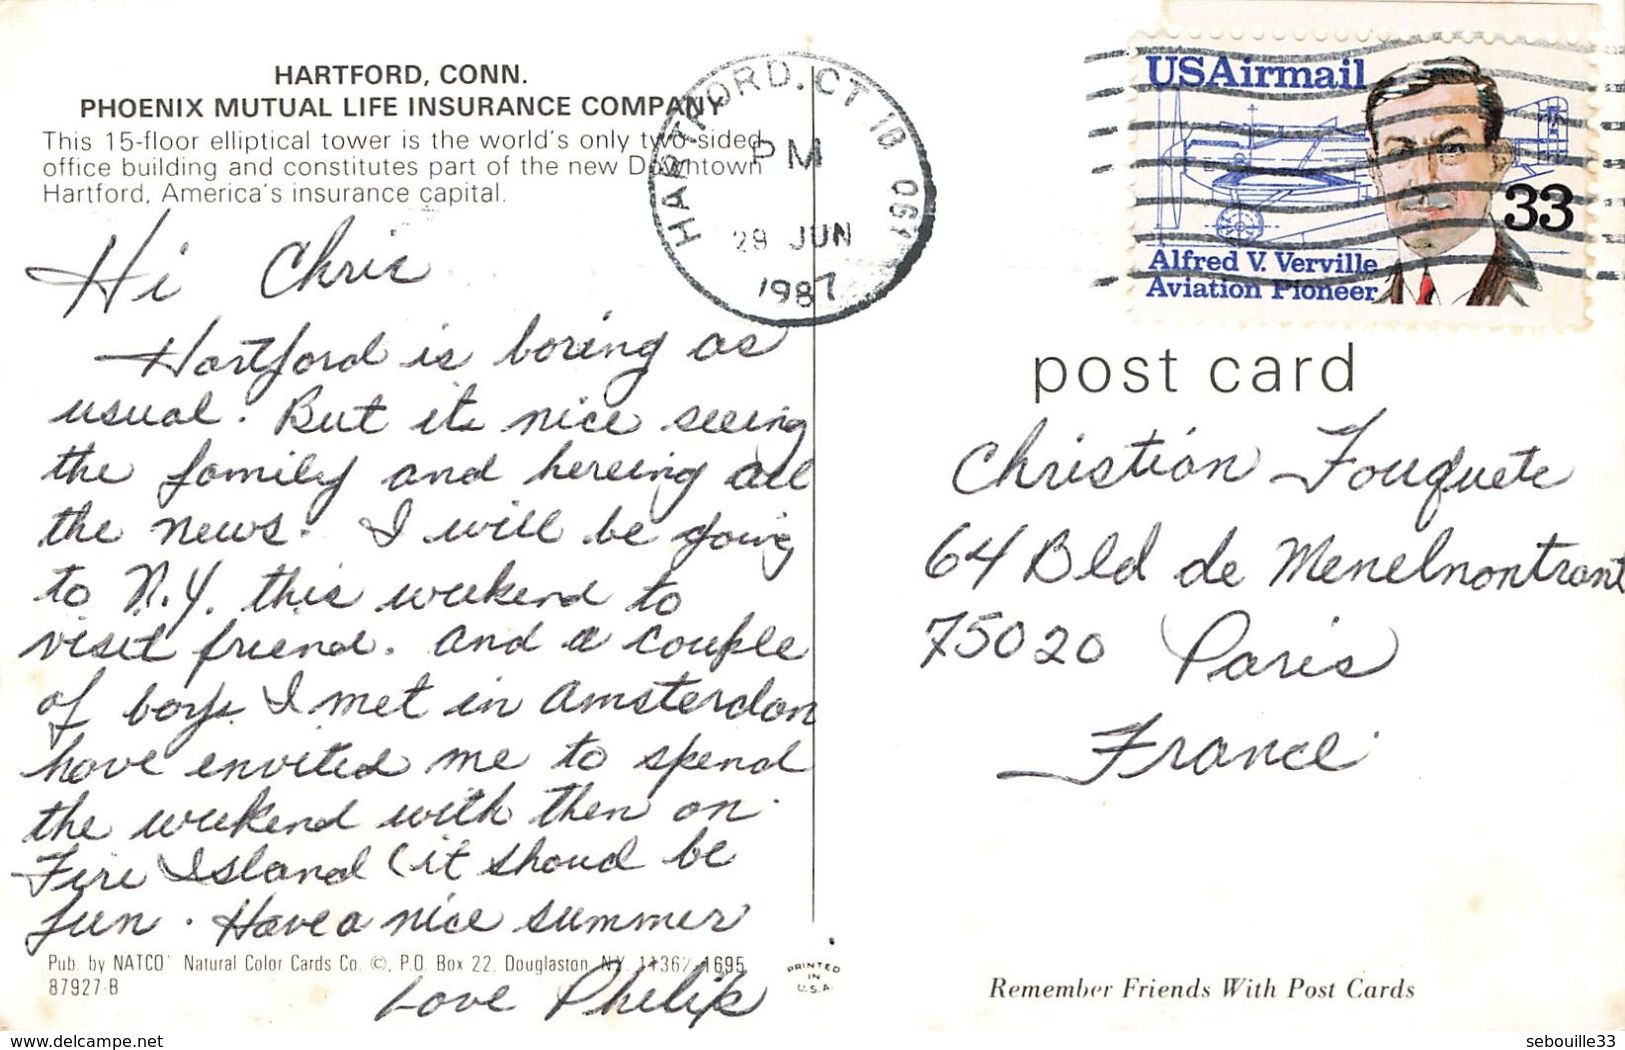 HARTFORD, CONN.
PHOENIX MUTUAL LIFE INSURANCE COMPANY
This 15-floor elliptical tower is the world's only two-sided
office building and constitutes part of the new Downtown
Hartford, America's insurance capital.
HARTFORD, CT
PM
29 JUN
1987
USAirmail
33
Alfred V. Verville
Aviation Pioneer
Hi Chris
Hartford is boring as
usual. But its nice seeing
the family and hereing all
the news. I will be going
to N.Y. this weekend to
visit friend. and a couple
of boys I met in Amsterdam
have envited me to spend
the weekend with then on
Fire Island (it shoud be
fun. Have a nice summer
Love Philip
post card
Christian Fouquete
64 Bld de Menelmontrant
75020 Paris
France
Pub. by NATCO Natural Color Cards Co. ©, P.O. Box 22, Douglaston, NY. 11362-1695
87927-B
PRINTED
IN
U.S.A.
Remember Friends With Post Cards
www.delcampe.net
sebouille33